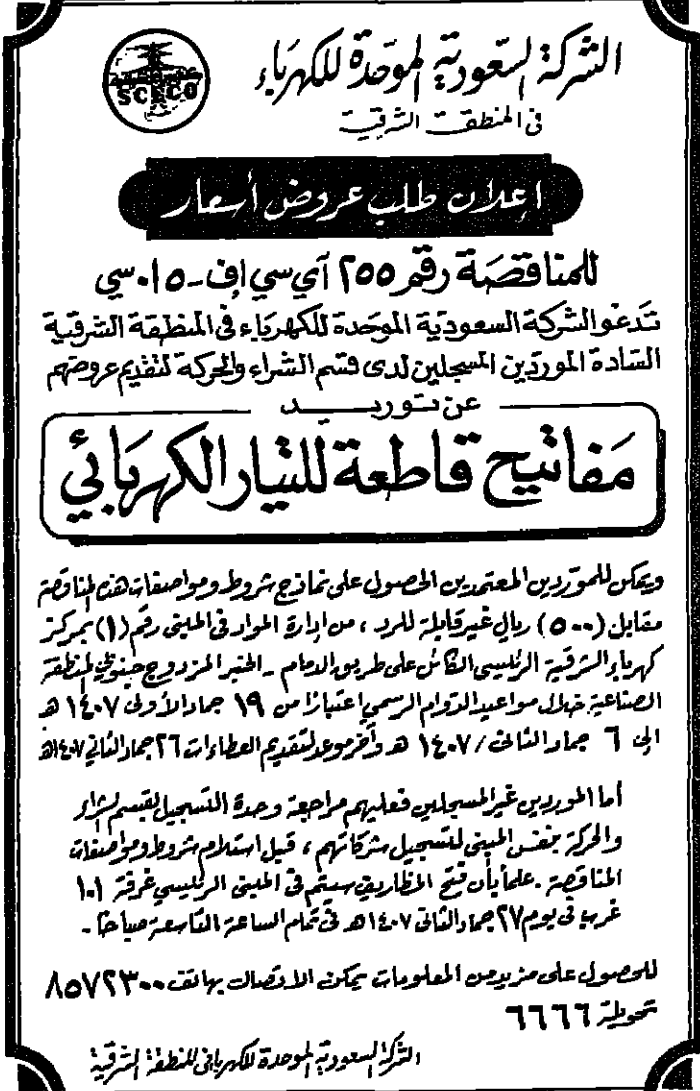 الشركة السعودية الموحدة للكهرباء
في المنطقة الشرقية
SCECO
إعلان طلب عروض أسعار
للمناقصة رقم ٢٥٥ آي سي إف - ٠١٥ سي
تدعو الشركة السعودية الموحدة للكهرباء في المنطقة الشرقية
السادة الموردين المسجلين لدى قسم الشراء والحركة لتقديم عروضهم
عن توريد
مفاتيح قاطعة للتيار الكهربائي
ويمكن للموردين المعتمدين الحصول على نماذج شروط ومواصفات هذه المناقصة
مقابل (٥٠٠) ريال غير قابلة للرد ، من إدارة المواد في المبنى رقم (١) بمركز
كهرباء الشرقية الرئيسي الكائن على طريق الدمام - الخبر المزدوج جنوبي المنطقة
الصناعية خلال مواعيد الدوام الرسمي اعتبارًا من ١٩ جماد الأولى ١٤٠٧ هـ
إلى ٦ جماد الثاني / ١٤٠٧ هـ وآخر موعد لتقديم العطاءات ٢٦ جماد الثاني ١٤٠٧هـ
أما الموردين غير المسجلين فعليهم مراجعة وحدة التسجيل لقسم الشراء
والحركة بنفس المبنى لتسجيل شركاتهم ، قبل استلام شروط ومواصفات
المناقصة . علمًا بأن فتح المظاريف سيتم في المبنى الرئيسي غرفة ١٠١
غرب في يوم ٢٧ جماد الثاني ١٤٠٧هـ في تمام الساعة التاسعة صباحًا -
للحصول على مزيد من المعلومات يمكن الاتصال بهاتف ٨٥٧٢٣٠٠
تحويلة ٦٦٦٦
الشركة السعودية الموحدة للكهرباء في المنطقة الشرقية